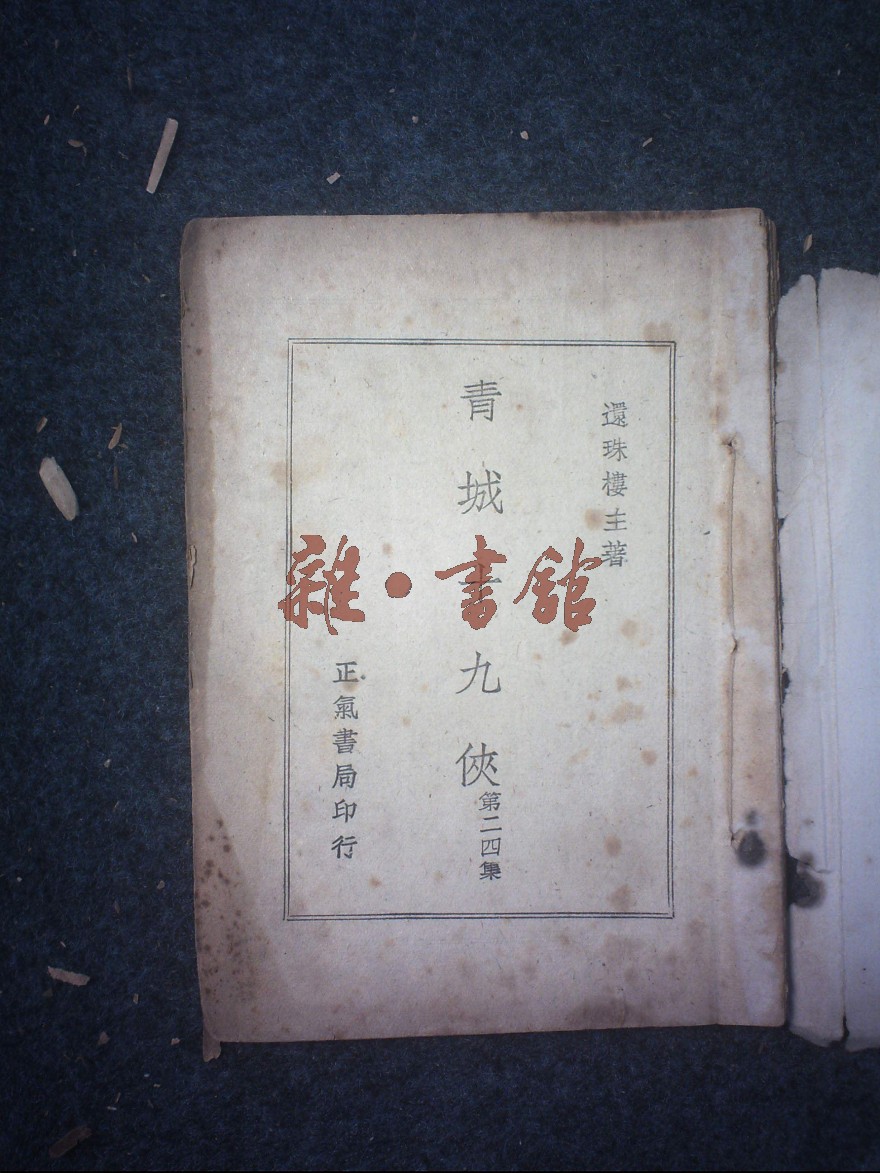 還珠樓主著
青城十九俠
第二四集
正氣書局印行
雜·書館